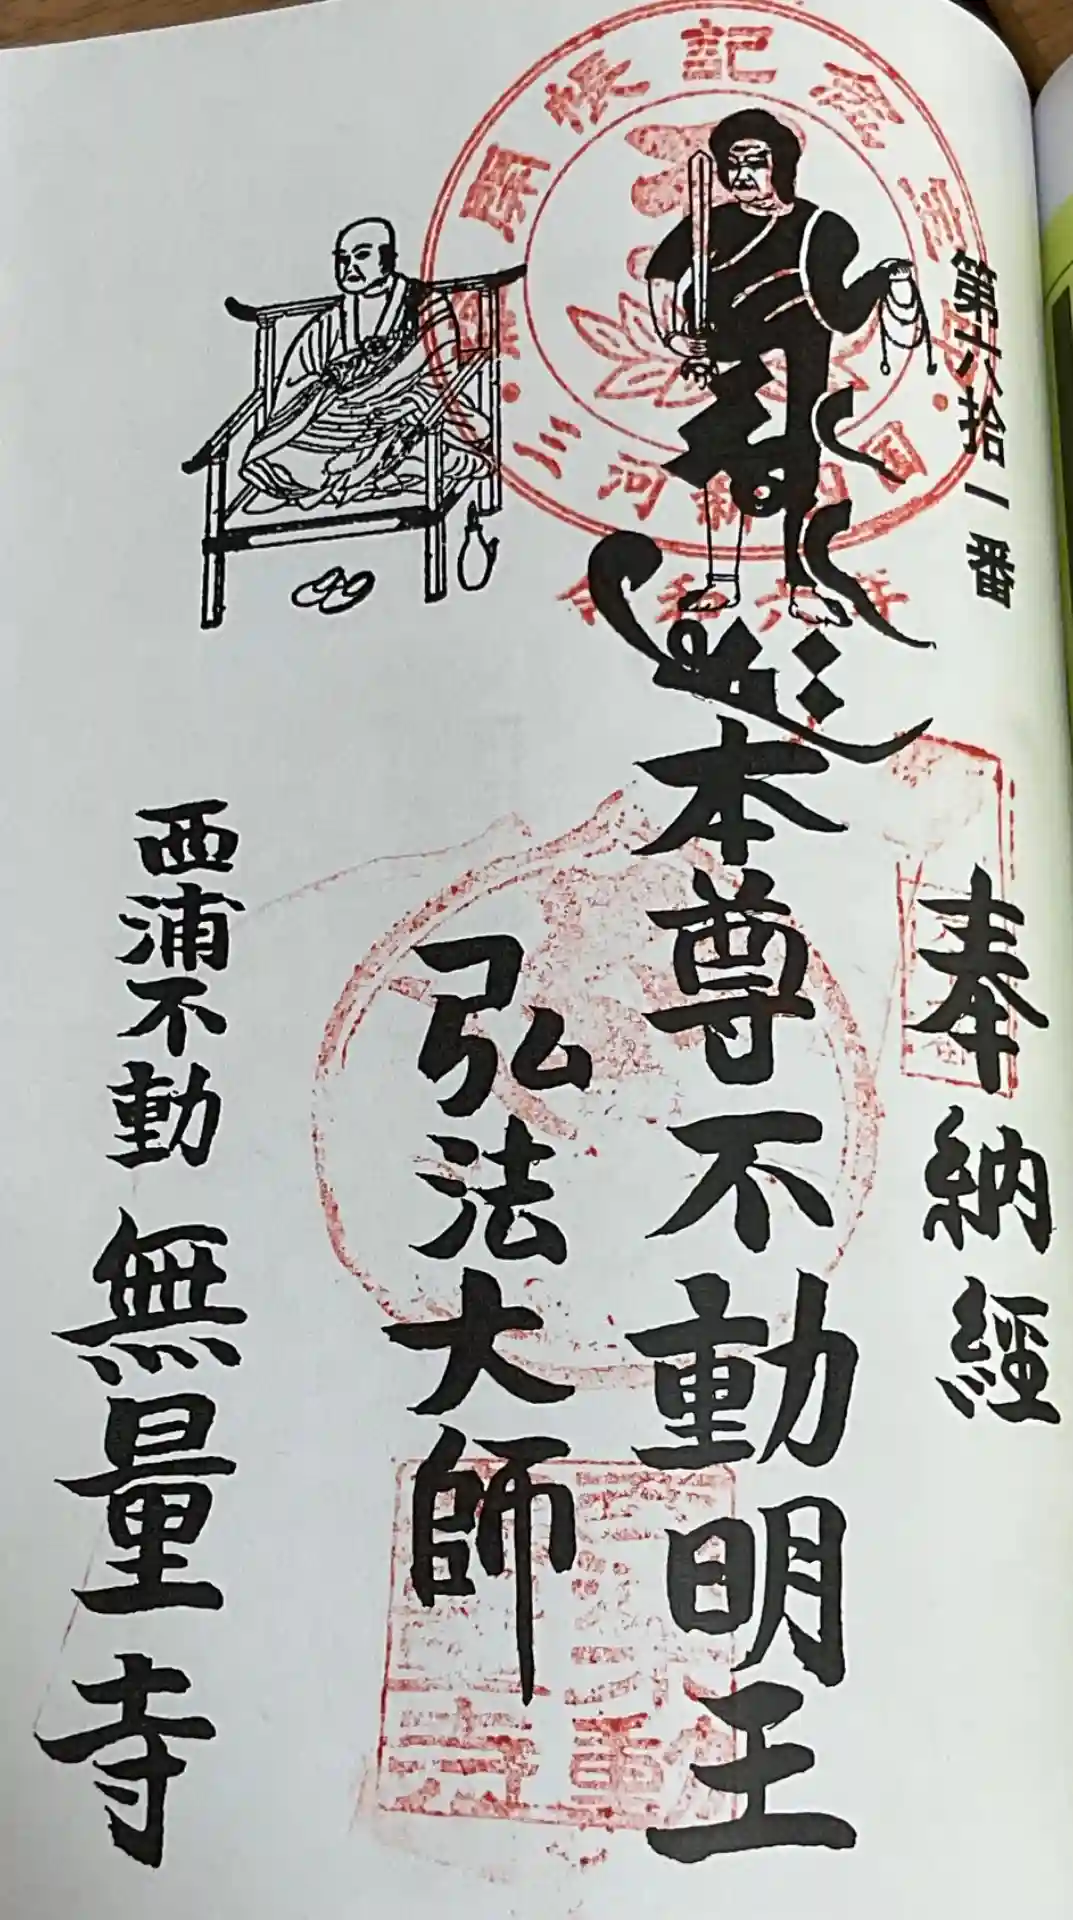 第六拾一番
奉納経
本尊不動明王
弘法大師
西浦不動 無量寺
開帳記念
三河新四国
令和六年